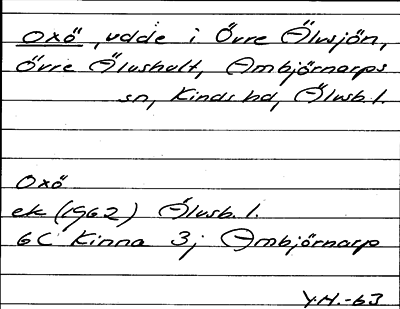 Oxö, udde i Övre Älusjön,
Övre Älushult, Ambjörnarps
sn, Kinds hd, Älvsb. l.
Oxö
ek (1962) Älvsb. l.
6C Kinna 3j Ambjörnarp
Y.H.-63